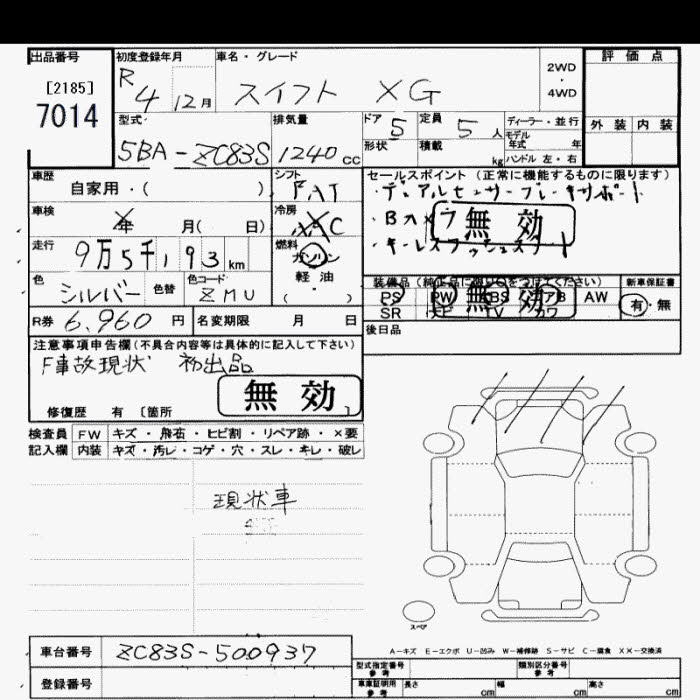 出品番号 初度登録年月 車名・グレード 評価点
[2185]
7014
R4 12月 スイフト XG 2WD・4WD
外装 内装
型式 排気量 ドア 5 定員 5人 ディーラー・並行
5BA-ZC83S 1240cc 形状 積載 kg モデル年式 年
ハンドル 左・右
車歴 自家用・( ) シフト FAT
セールスポイント (正常に機能するものに限ります)
・デュアルセンサーブレーキサポート
車検 年 月( 日) 冷房 AC
無効
・キーレスプッシュスタート
走行 9万5千193km 燃料 ガソリン 軽油 ( )
色 シルバー 色替 色コード ZMU
装備品 (純正品に限り○をつけてください) 新車保証書
PS PW ABS AB AW 有・無
SR ナビ TV カワ
無効
R券 6,960円 名変期限 月 日
後日品
注意事項申告欄(不具合内容等は具体的に記入して下さい)
F事故現状 初出品
無効
修復歴 有 [箇所 ]
検査員 FW キズ・飛石・ヒビ割・リペア跡・×要
記入欄 内装 キズ・汚レ・コゲ・穴・スレ・キレ・破レ
現状車
スペア
A-キズ E-エクボ U-凹み W-補修跡 S-サビ C-腐食 XX-交換済
車台番号 ZC83S-500937
型式指定番号 参考 類別区分番号 参考
登録番号
車庫証明用 参考 長さ cm 幅 cm 高さ cm